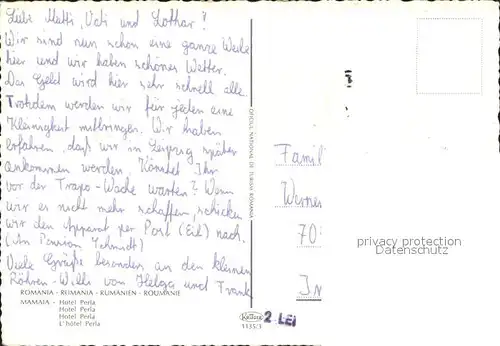 Liebe Mutti, Udi und Lothar!
Wir sind nun schon eine ganze Weile
hier und wir haben schönes Wetter.
Das Geld wird hier sehr schnell alle.
Trotzdem werden wir für jeden eine
Kleinigkeit mitbringen. Wir haben
erfahren, daß wir in Leipzig später
ankommen werden. Könntet Ihr
vor der Trapo-Wache warten? Wenn
wir es nicht mehr schaffen, schicken
wir den Apparat per Post (Eil) nach.
(An Pension Schmidt)
Viele Grüße besonders an den kleinen
von Helga und Frank
ROMANIA - RUMANIA - RUMÄNIEN - ROUMANIE
MAMAIA - Hotel Perla
Hotel Perla
Hotel Perla
L'hôtel Perla
OFICIUL NATIONAL DE TURISM ROMANIA
1135/3
2 LEI
Famil
Werner
70
privacy protection
Datenschutz